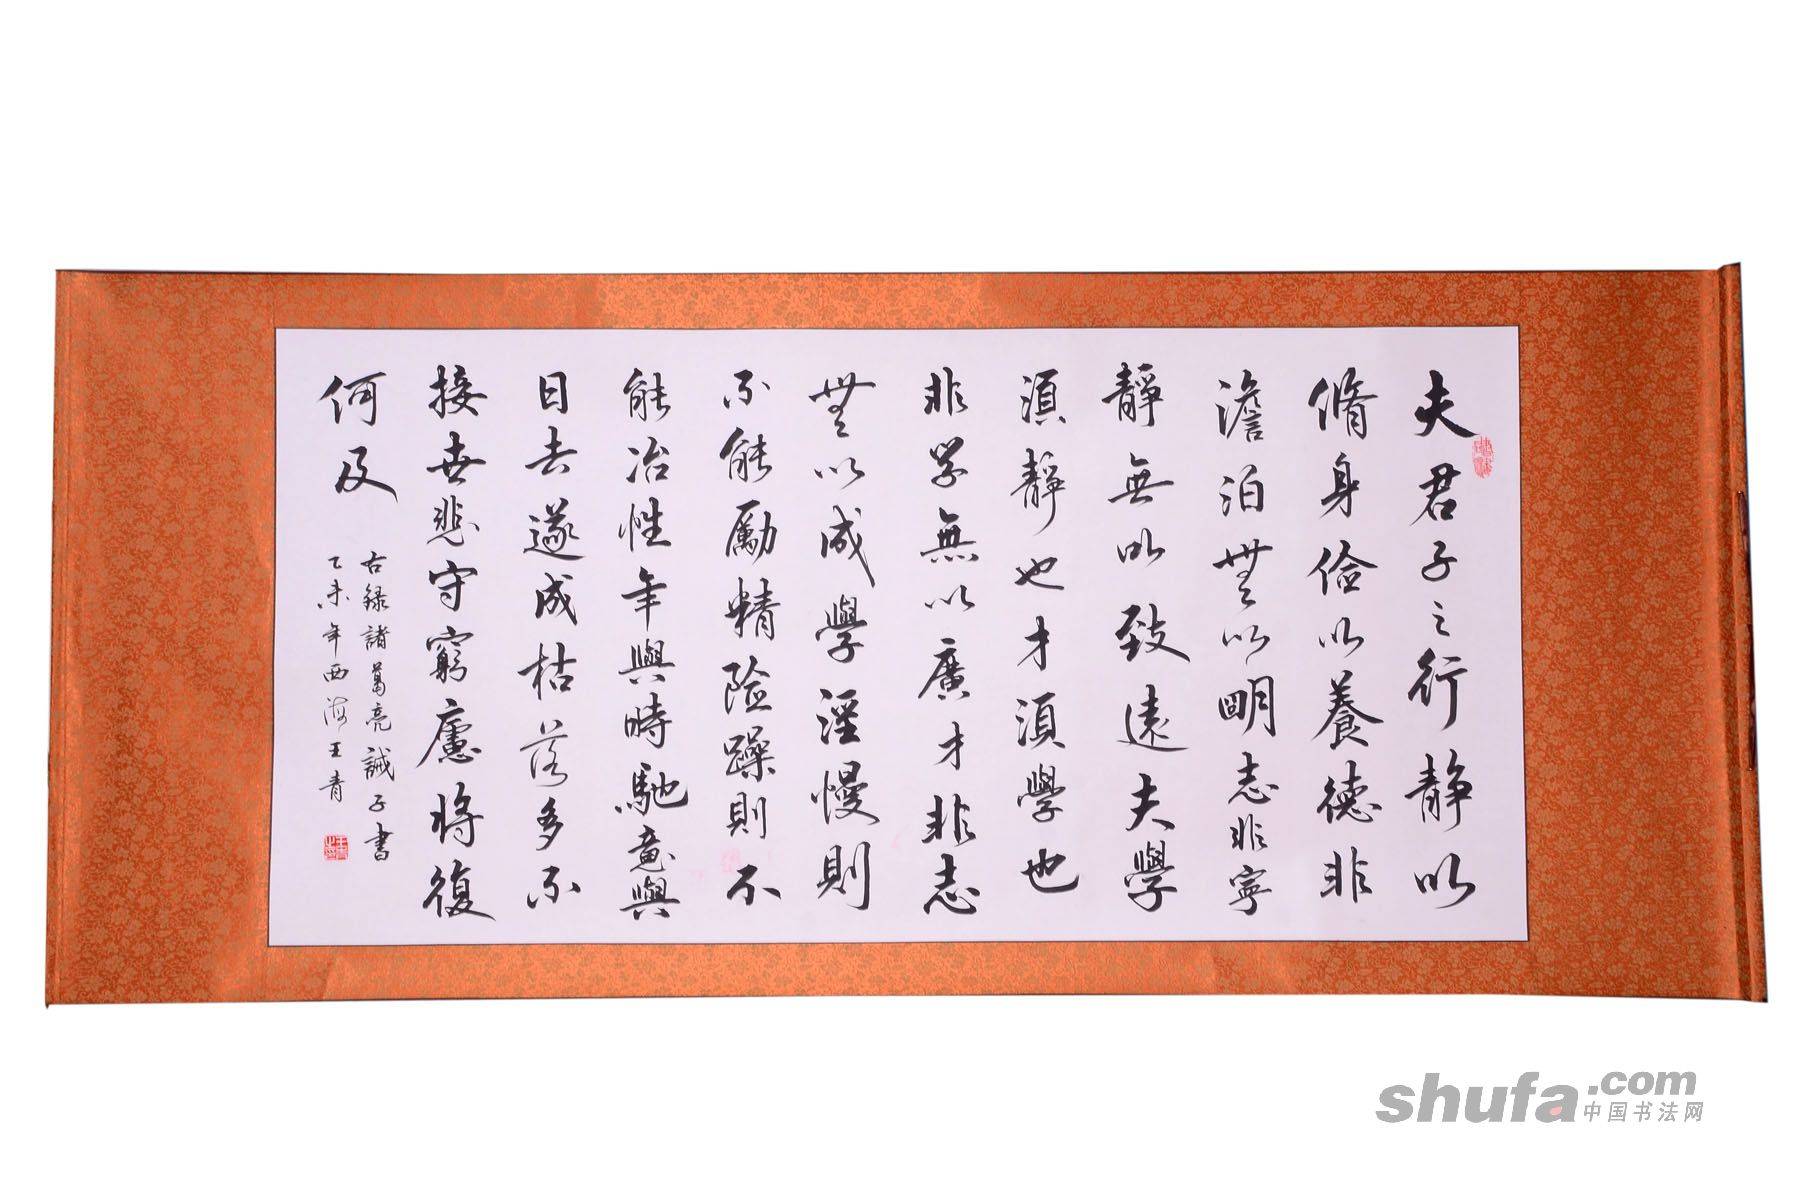 夫君子之行静以
脩身儉以養德非
澹泊無以明志非寧
靜無以致遠夫學
須靜也才須學也
非学無以廣才非志
無以成學淫慢則
不能勵精險躁則不
能冶性年與時馳意與
日去遂成枯落多不
接世悲守窮廬將復
何及
古録諸葛亮誡子書
乙未年西海王青
shufa.com
中国书法网